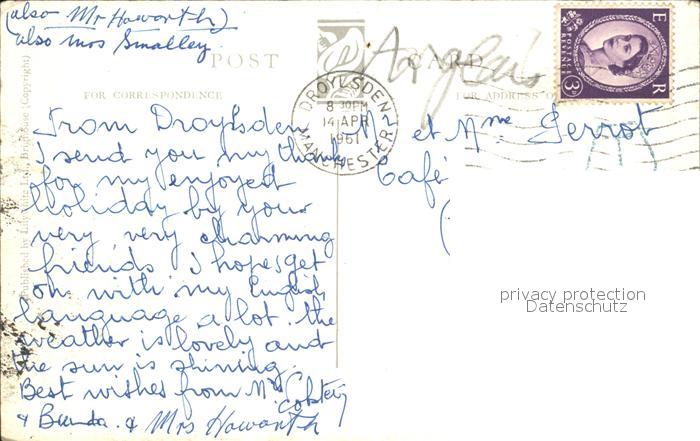 (also Mr Haworth)
also Mrs Smalley.
POST CARD
Anglais
FOR CORRESPONDENCE
FOR ADDRESS O
E R
POSTAGE
3D
DROYLSDEN
8 30PM
14 APR
1961
MANCHESTER
From Droylsden
I send you my thank
for my enjoyed
holiday by your
very very charming
friends I hope get
on with my English
language a lot. the
weather is lovely and
the sun is shining.
Best wishes from Mrs
& Mrs Haworth
M. et Mme Perrot
Café
(
privacy protection
Datenschutz